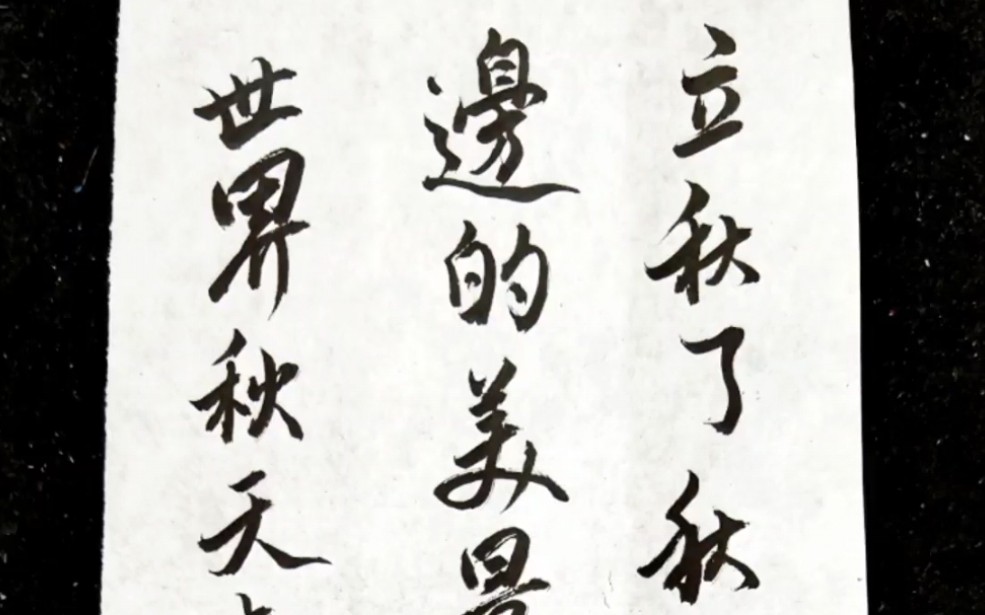 立秋了秋
邊的美景
世界秋天